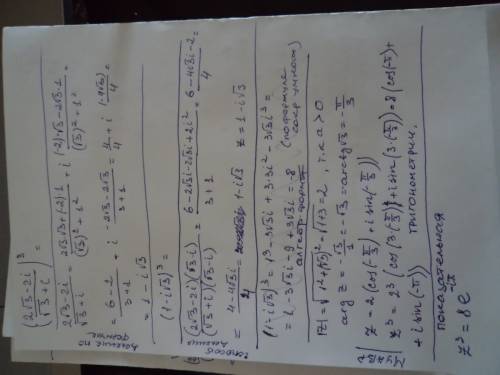 (2√3-2i / √3+i)³ =
деление по формуле
2√3-2i / √3+i = 2√3·√3+(-2)·1 / (√3)²+1² + i (-2)·√3-2√3·1 / (√3)²+1² =
= 6-2 / 3+1 + i -2√3-2√3 / 3+1 = 4/4 + i (-4√3)/4 =
= 1-i√3
(1-i√3)³ =
деления
(2√3-2i)(√3-i) / (√3+i)(√3-i) = 6-2√3i-2√3i+2i² / 3+1 = 6-4√3i-2 / 4 =
= 4-4√3i / 4 = 1-i√3 z=1-i√3
(1-i√3)³ = 1³-3√3i+3·3i²-3√3i³ =
= 1-3√3i-9+3√3i = -8 (по формуле сокр умнож)
алгебр форма
|z| = √1²+(√3)² = √1+3 = 2, т.к a>0
arg z = -√3/1 = -√3 = -arctg√3 = -π/3
Муавр
z = 2(cos(-π/3)+i sin(-π/3))
z³ = 2³(cos(3·(-π/3))+i sin(3·(-π/3))) = 8(cos(-π)+
+i sin(-π)) тригонометрич.
показательная
z³ = 8e^-iπ